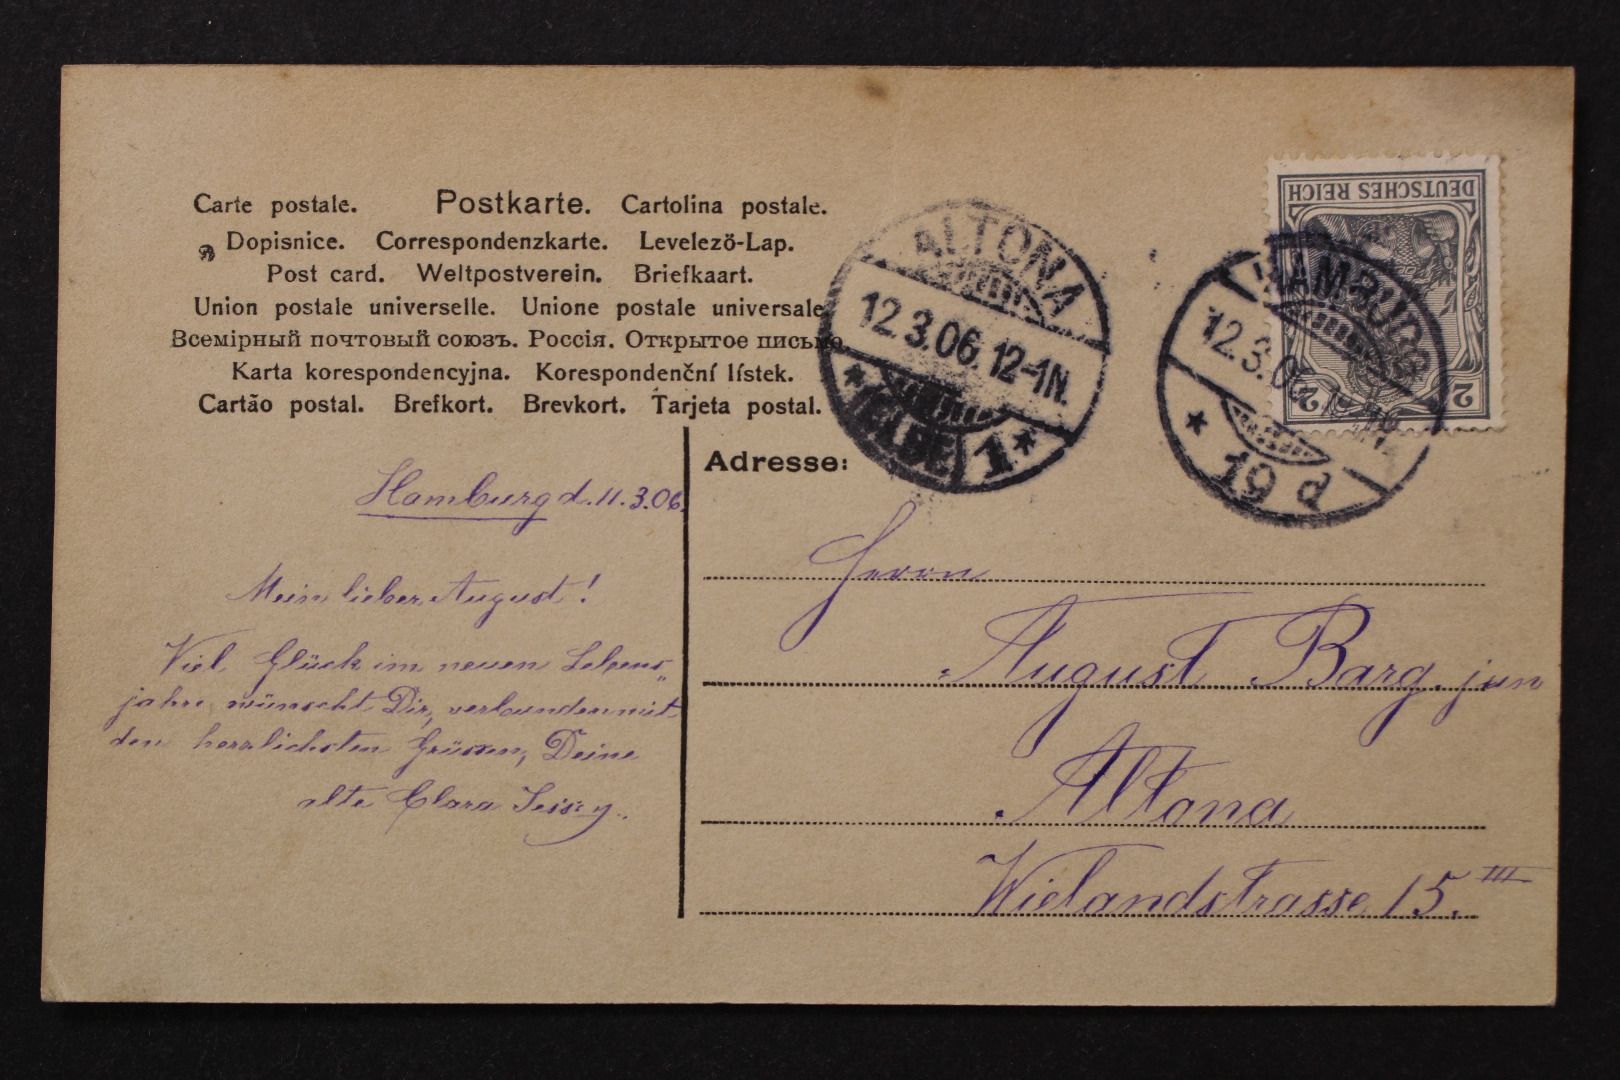 Carte postale. Postkarte. Cartolina postale.
Dopisnice. Correspondenzkarte. Levelező-Lap.
Post card. Weltpostverein. Briefkaart.
Union postale universelle. Unione postale universale
Всемірный почтовый союзъ. Россія. Открытое письмо.
Karta korespondencyjna. Korespondenční lístek.
Cartão postal. Brefkort. Brevkort. Tarjeta postal.
ALTONA
12.3.06.12-1N.
* (ELBE) 1 *
DEUTSCHES REICH
2 2
HAMBURG
12.3.06
* 19 d
Adresse:
Hamburg d. 11.3.06.
Mein lieber August!
Viel Glück im neuen Lebens„
jahre wünscht Dir, verbunden mit
den herzlichsten Grüssen, Deine
alte Clara
Herrn
August Barg. jun
Altona
Wielandstrasse 15. III